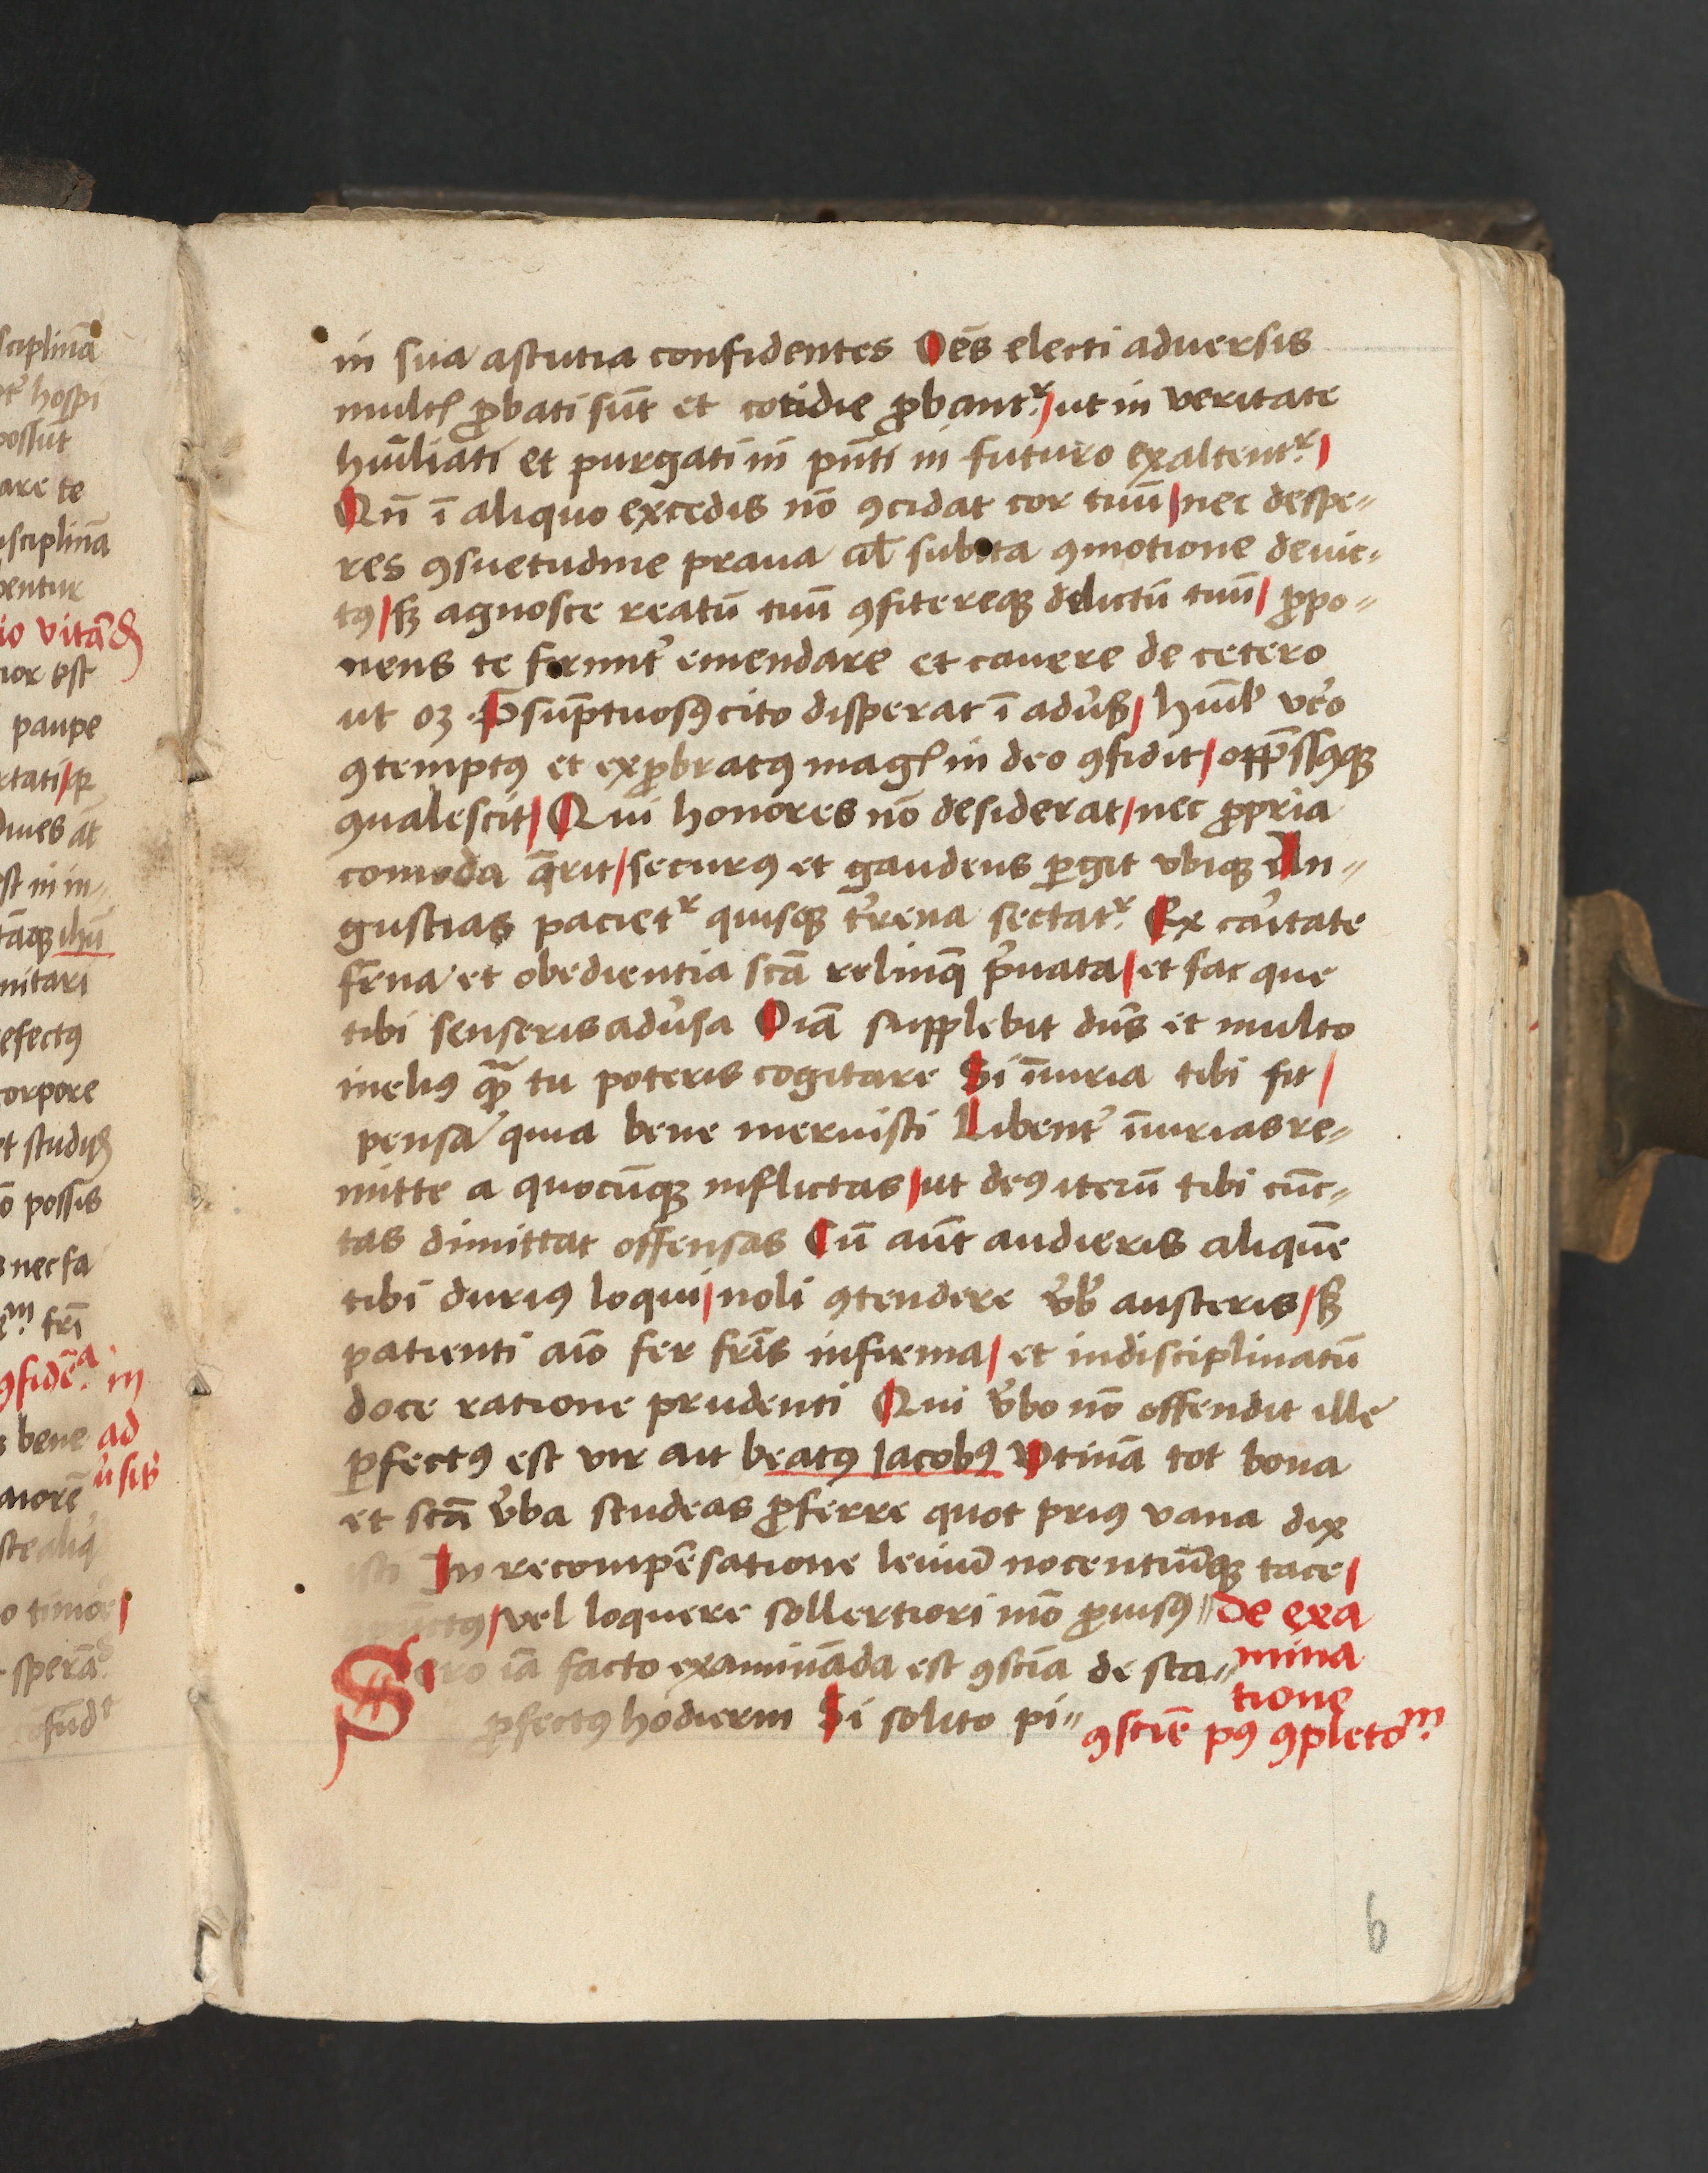 in sua astutia confidentes Oēs electi aduersis
multꝭ ꝓbati sūt et cotidie ꝓbantʳ/ ut in veritate
hūiliati et purgati in pn̄ti in futuro exaltentʳ/
Qn̄ ī aliquo excedis nō ꝯcidat cor tuū/ nec despe-
res ꝯsuetudine praua al̄ subita ꝯmotione deuic-
tꝰ/ sꝫ agnosce reatū tuū ꝯfitereqꝫ delictū tuū/ ꝓpo-
nens te firmit̉ emendare et cauere de cetero
ut oꝫ P̄sūptuosꝰ cito disperat ī adu̓ß/ hūil̓ ve̓o
ꝯtemptꝰ et exꝓbratꝰ magꝭ in deo ꝯfidit/ opp̄ssꝰqꝫ
ꝯualescit/ Qui honores nō desiderat/ nec ꝓpria
comoda q̄rit/ securꝰ et gaudens ꝑgit vbiqꝫ An-
gustias pacietʳ quisqꝫ t̓rena sectatʳ Ex ca̓itate
fr̄na et obedientia scā relinq̄ p̓uata/ et fac que
tibi senseris adu̓sa Oīa supplebit dn̄s et multo
meliꝰ ꝙ̄ tu poteris cogitare Si īiuria tibi fit/
pensa quia bene meruisti Libent̓ īiurias re-
mitte a quocūqꝫ inflictas/ ut deꝰ iterū tibi cūc-
tas dimittat offensas Cū aūt audieris aliquē
tibi duriꝰ loqui/ noli ꝯtendere v̓b̓ austeris/ sꝫ
patienti aīo fer fr̄is infirma/ et indisciplinatū
doce ratione prudenti Qui v̓bo nō offendit ille
ꝑfectꝰ est vir ait beatꝰ Jacobꝰ Vtinā tot bona
et scā v̓ba studeas ꝓferre quot priꝰ vana dix
isti In recompēsatione leuiū nocentiūqꝫ tace/
vel loquere sollertiori mō ꝓuisꝰ de exa
mina
Sero iā facto examināda est ꝯscīa de sta-
tione
ꝓfectꝰ hodierni Si solito pi-
ꝯscīe pꝰ ꝯpletoᵐ
6